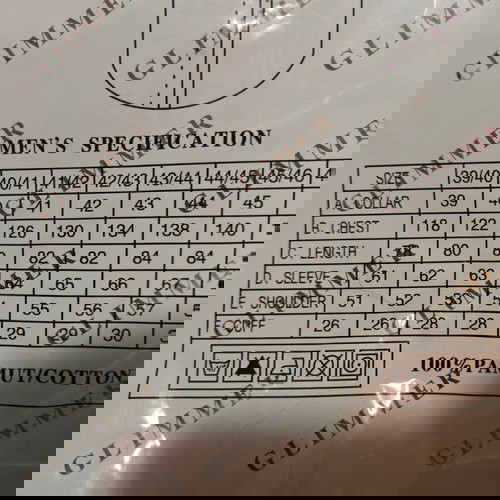 GLIMMER GLIMMER GLIMMER
MEN'S SPECIFICATION
40/41 41/42 42/43 43/44 44/45 45/46 SIZE 39/40
41 42 43 44 45 A. COLLAR 39
126 130 134 138 140 B. CHEST 118 122
82 82 84 84 C. LENGTH 80 80
64 65 66 67 D. SLEEVE 61 62 63
55 56 57 E. SHOULDER 51 52 53
29 29 30 F. CUFF 26 26 28 28
100% PAMUT/COTTON
GLIMMER GLIMMER GLIMMER